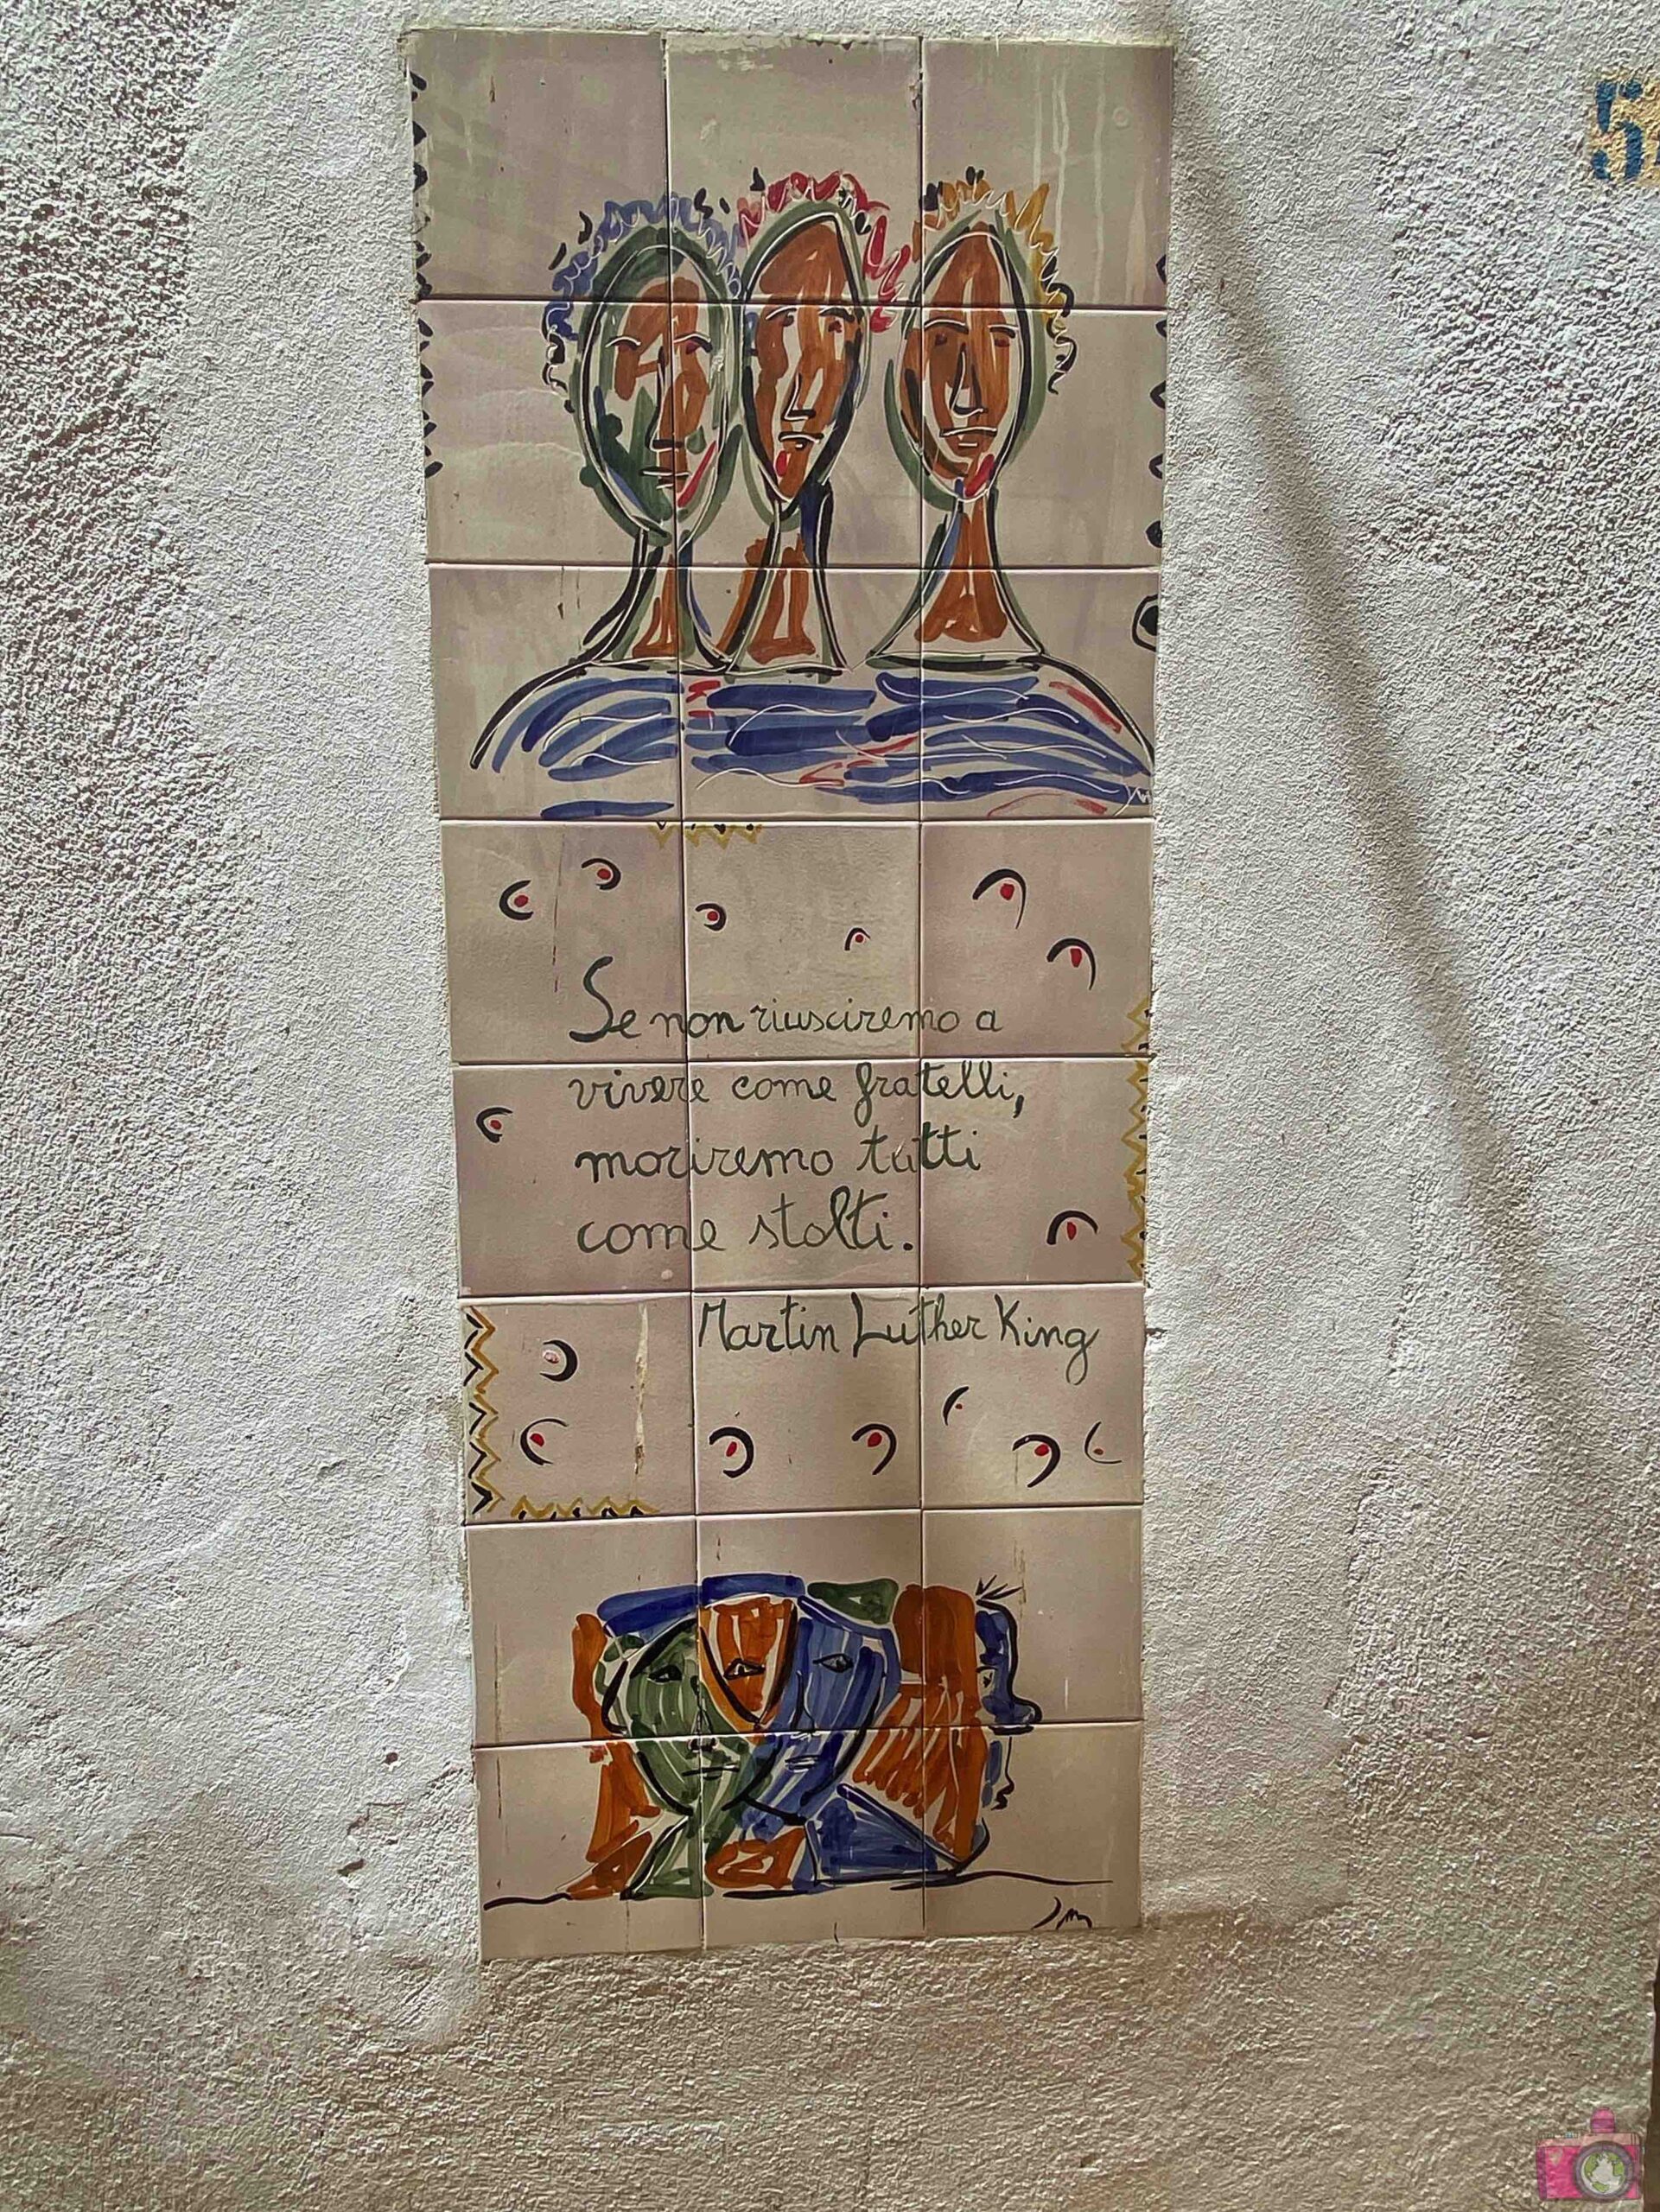 5
Se non riusciremo a
vivere come fratelli,
moriremo tutti
come stolti.
Martin Luther King